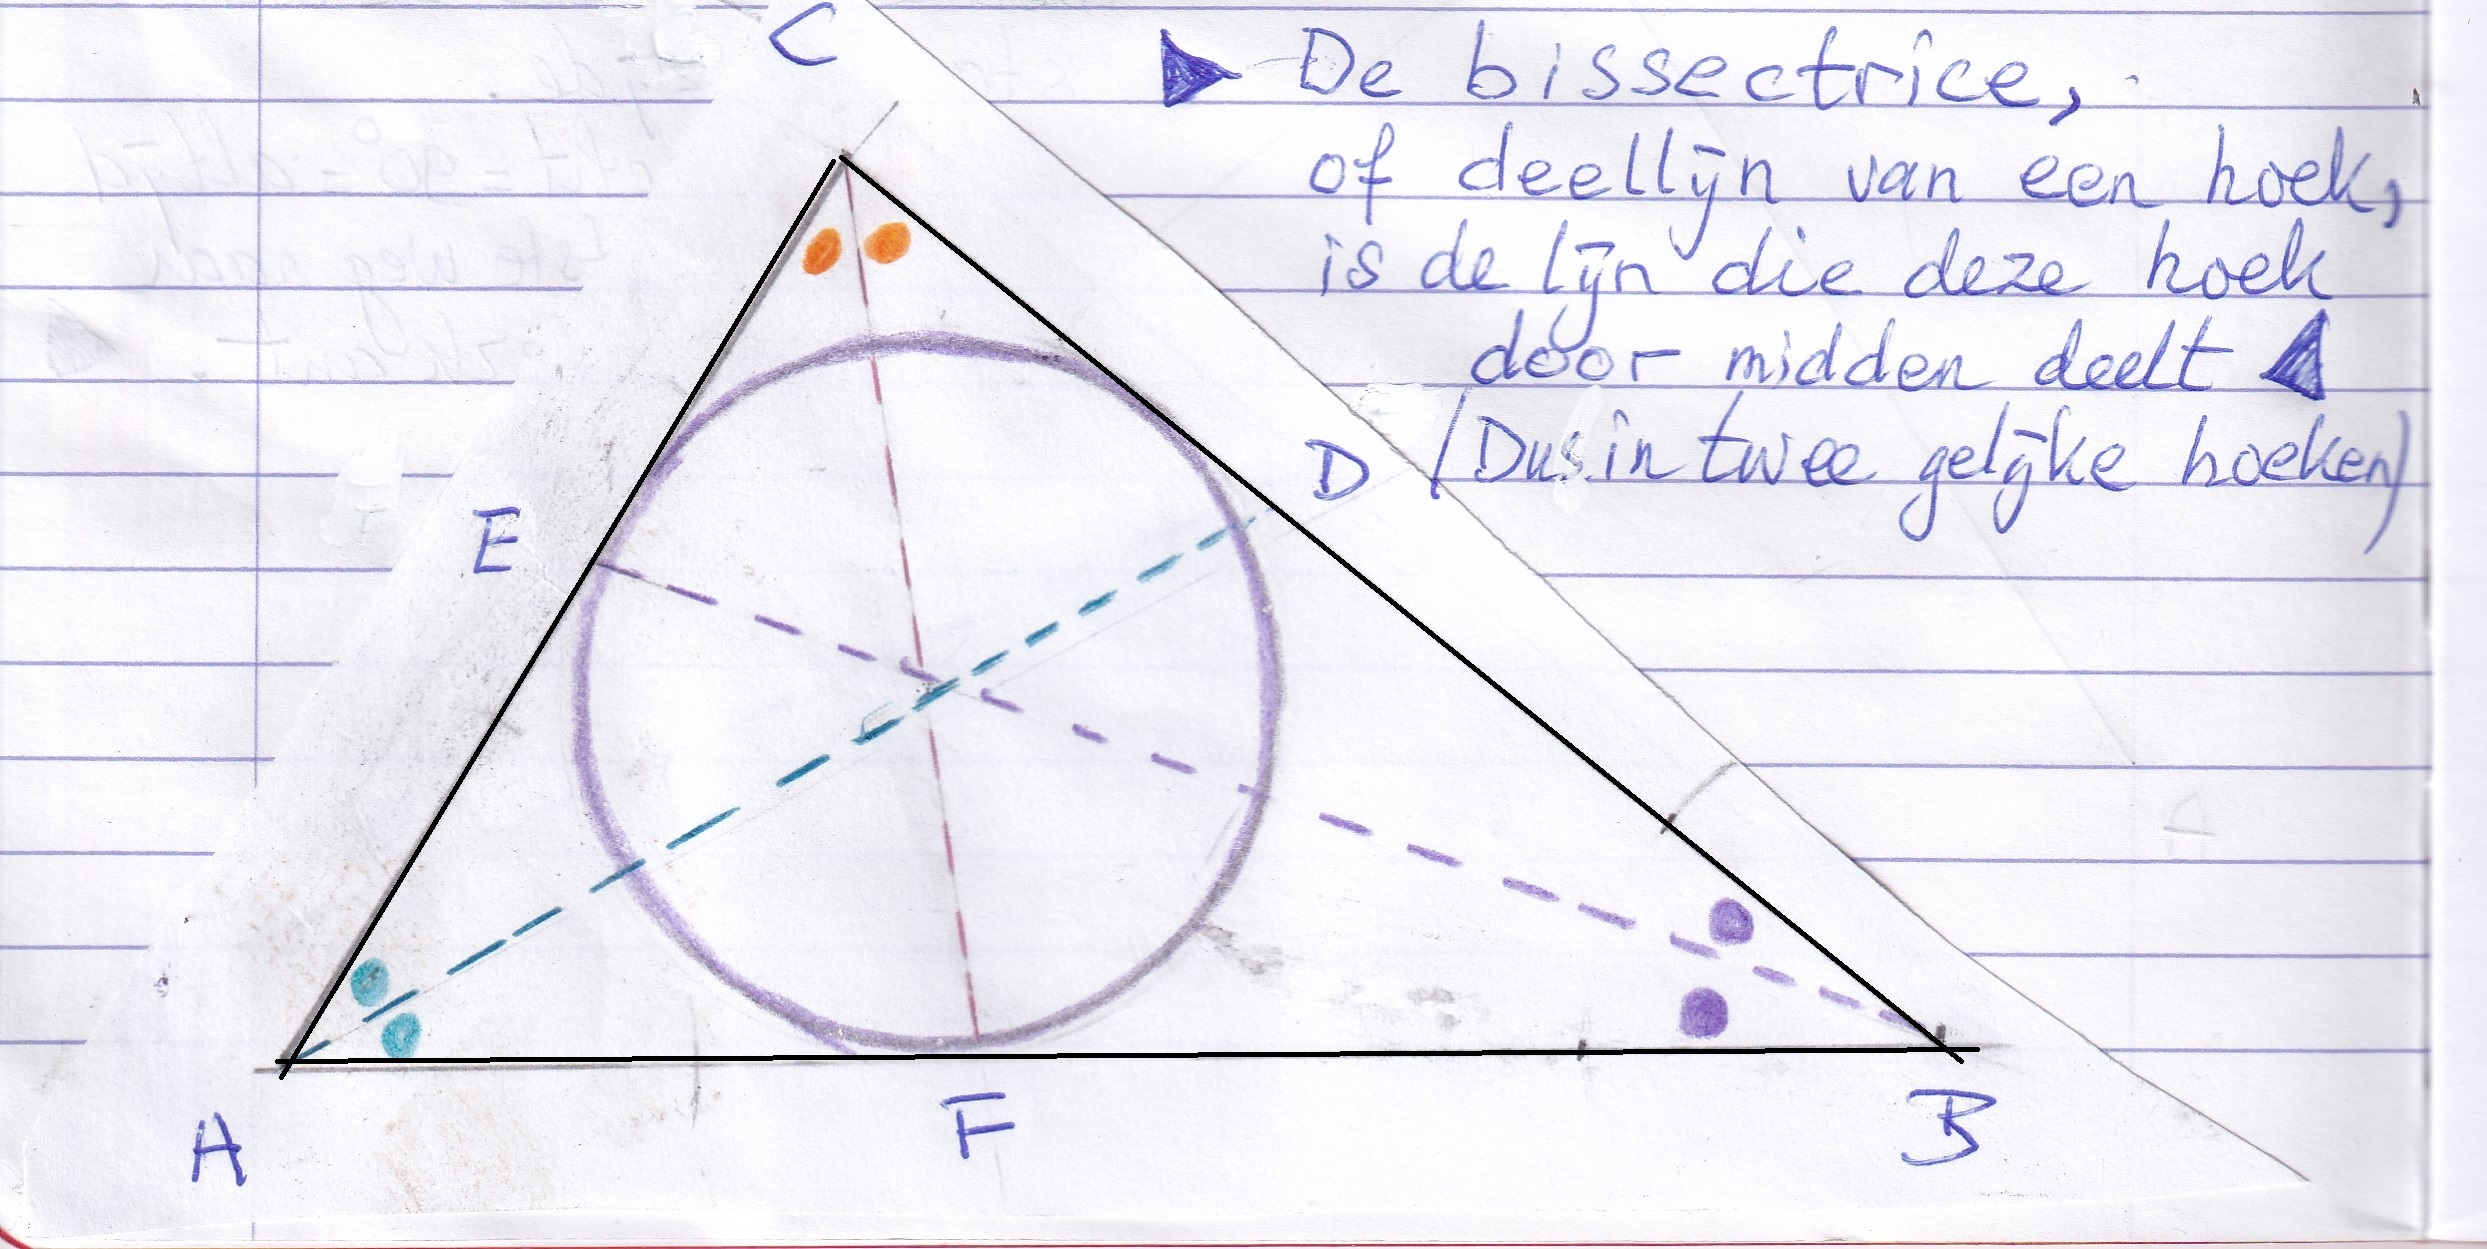 C
De bissectrice,
of deellijn van een hoek,
is de lijn die deze hoek
door midden deelt
D (Dus in twee gelijke hoeken)
E
A F B